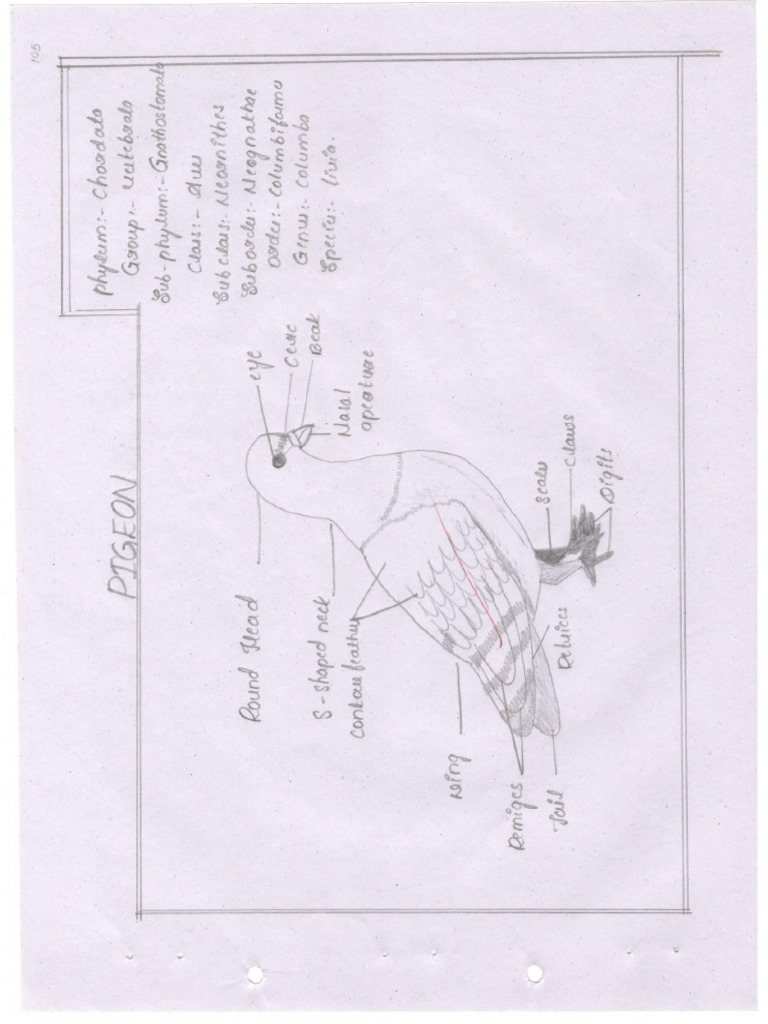 105
Phylum:- Chordata
Group:- Vertebrata
Sub-phylum:- Gnathostomata
Class:- Aves
Subclass:- Neornithes
Suborder:- Neognathae
Order:- Columbiformu
Genus:- Columba
Species:- livia.
PIGEON
eye
Cere
Beak
Nasal
aperature
Round Head
S-shaped neck
contour feather
Wing
Remiges
Tail
Retrices
Scales
Claws
Digits